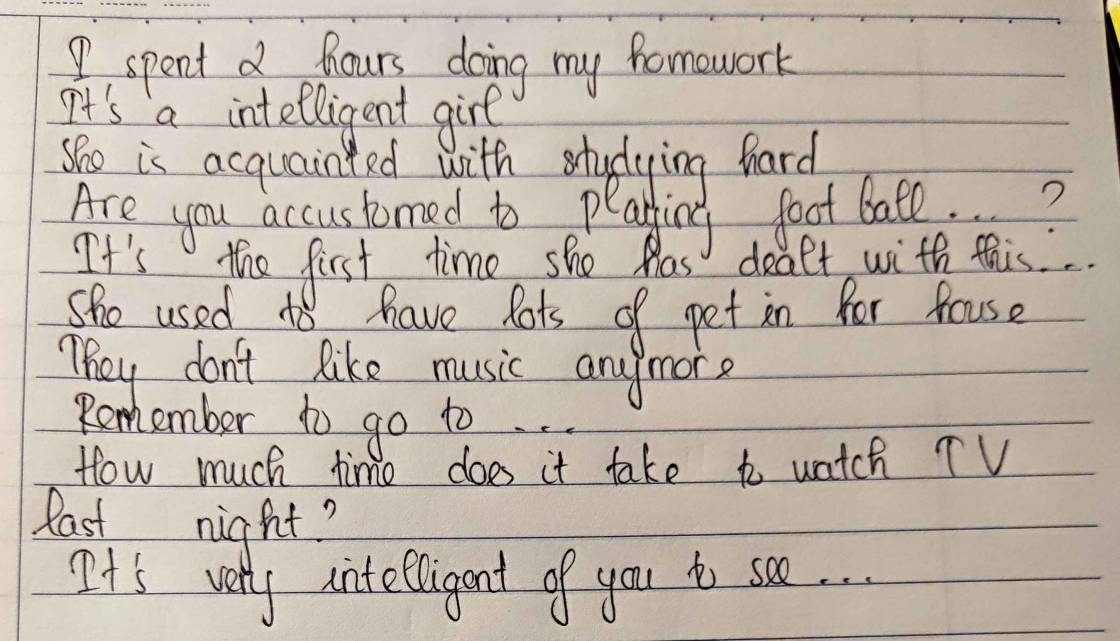 I spent 2 hours doing my homework
It's a intelligent girl
She is acquainted with studying hard
Are you accustomed to playing foot ball.... ?
It's the first time she has dealt with this....
She used to have lots of pet in her house
They don't like music anymore
Remember to go to ...
How much time does it take to watch TV
last night?
It's very intelligent of you to see ...